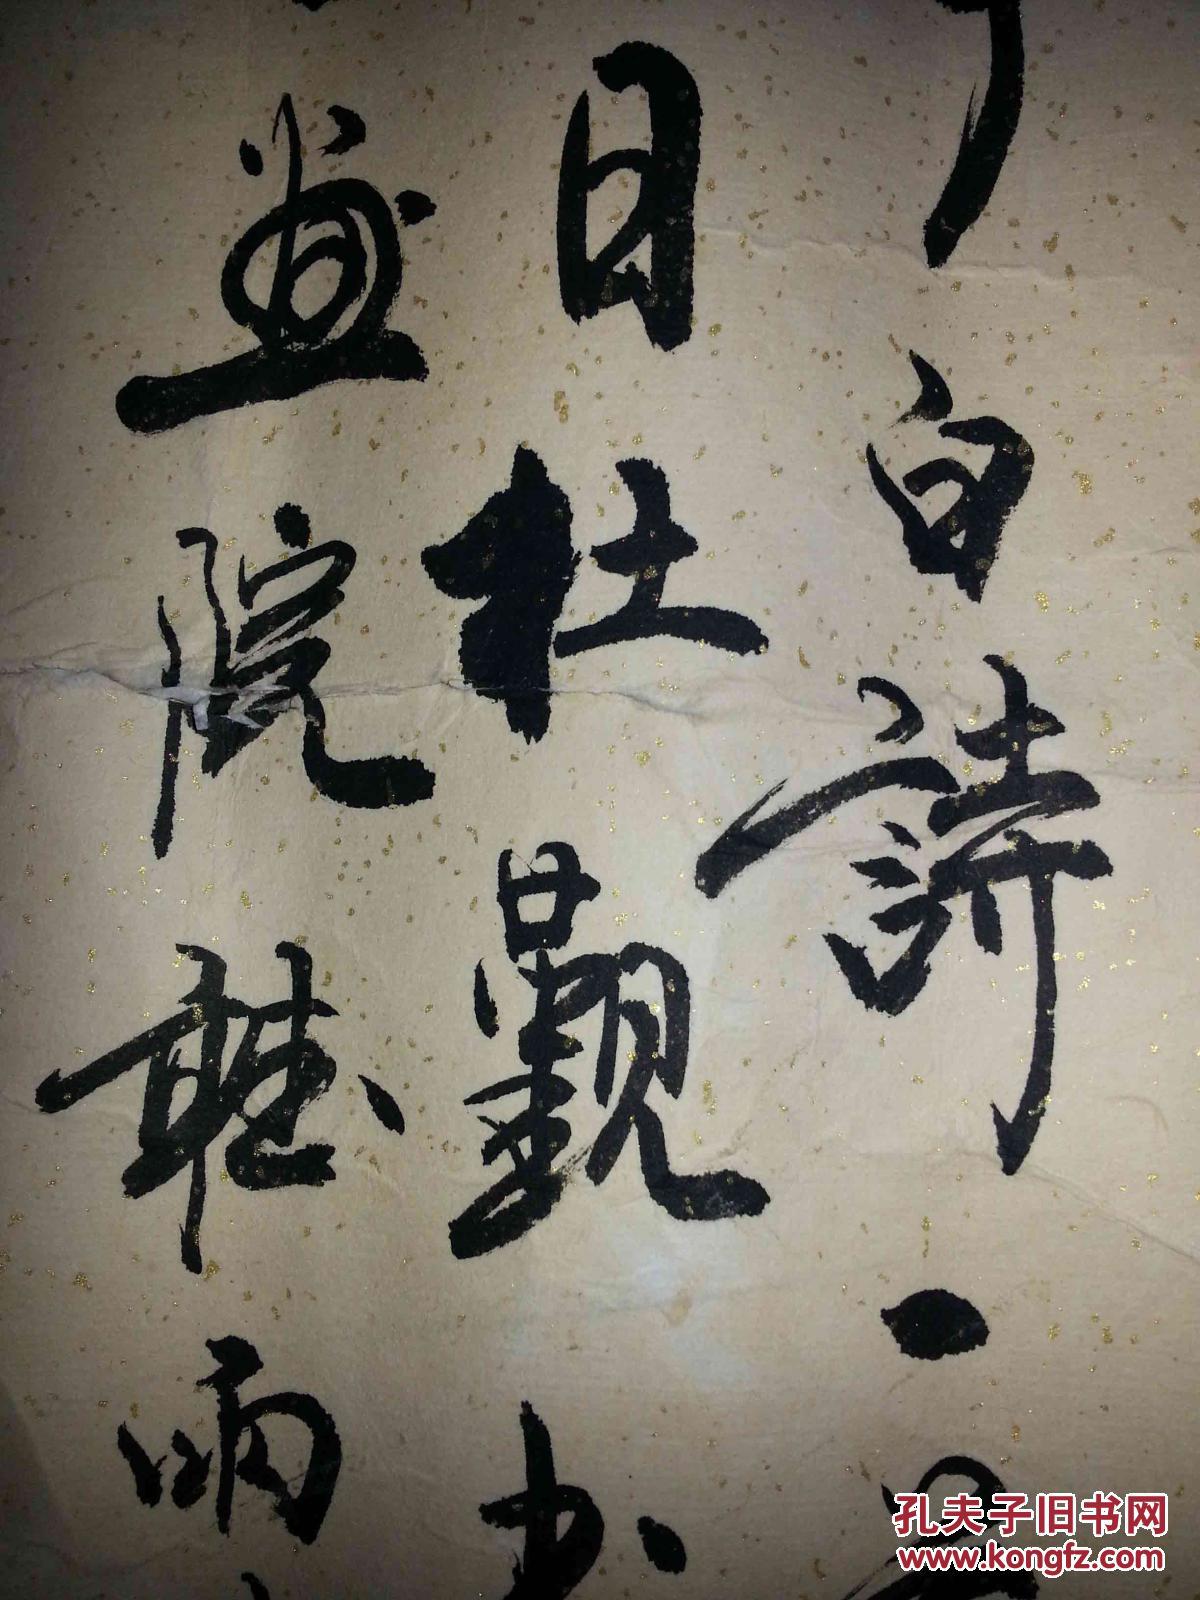 白詩一
日杜觀
畫院聽雨
孔夫子旧书网
www.kongfz.com